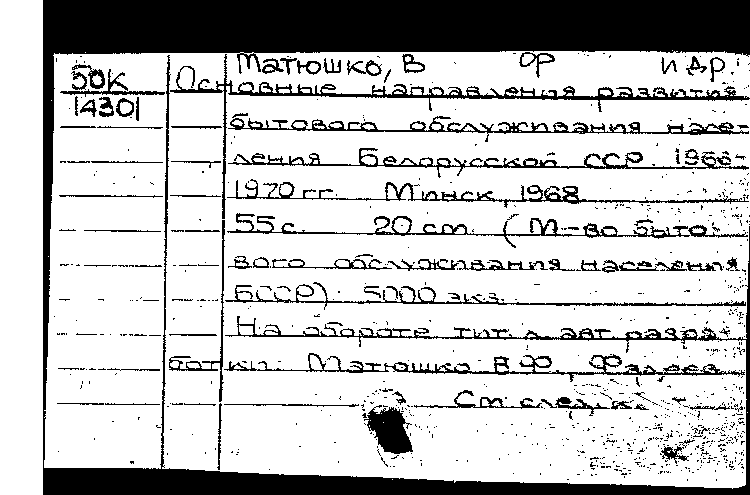 Матюшко, В ФР и др.
50К Основные направления развития
14301
бытового обслуживания насе-
ления Белорусской ССР 1966-
1970 гг. Минск, 1968
55 с. 20 cm. (М-во быто-
вого обслуживания населения
БССР). 5000 экз.
На обороте тит. л. авт. разра-
ботки: Матюшко В.Ф., Фадеев
См. след. к.